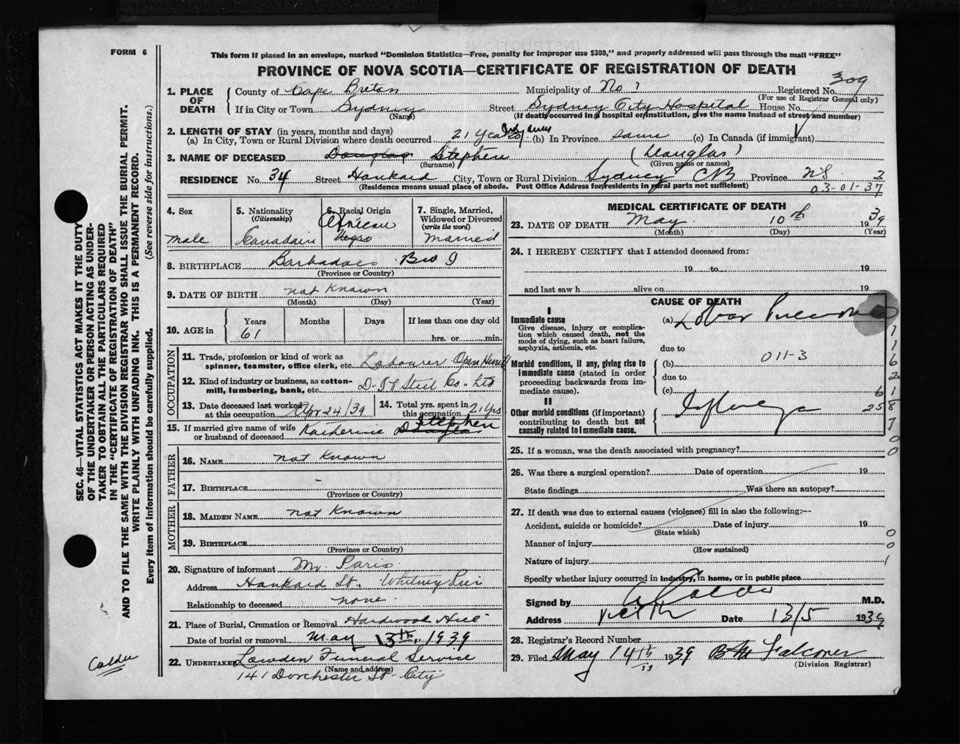 FORM 6
This form if placed in an envelope, marked "Dominion Statistics—Free, penalty for improper use $300," and properly addressed will pass through the mail "FREE"
PROVINCE OF NOVA SCOTIA—CERTIFICATE OF REGISTRATION OF DEATH
309
1. PLACE OF DEATH
County of Cape Breton Municipality of No 1 Registered No.
(For use of Registrar General only)
If in City or Town Sydney Street Sydney City Hospital House No.
(Name) (If death occurred in a hospital or institution, give the name instead of street and number)
2. LENGTH OF STAY (in years, months and days)
(a) In City, Town or Rural Division where death occurred 21 years (b) In Province same (c) In Canada (if immigrant)
3. NAME OF DECEASED Douglas Stephen (Douglas)
(Surname) (Given name or names)
RESIDENCE No. 34 Street Hankard City, Town or Rural Division Sydney CB Province NS 2
(Residence means usual place of abode. Post Office Address for residents in rural parts not sufficient) 03-01-37
4. Sex
Male
5. Nationality (Citizenship)
Canadain
6. Racial Origin
African
Negro
7. Single, Married, Widowed or Divorced (write the word)
Married
8. BIRTHPLACE Barbadoes BWI
(Province or Country)
9. DATE OF BIRTH not Known
(Month) (Day) (Year)
10. AGE in Years Months Days If less than one day old
61 hrs. or min.
OCCUPATION
11. Trade, profession or kind of work as spinner, teamster, office clerk, etc. Labourer Open Hearth
12. Kind of industry or business, as cotton-mill, lumbering, bank, etc. D. Steel Co. Ltd
13. Date deceased last worked at this occupation Apr 24/39
14. Total yrs. spent in this occupation 21 Yrs
15. If married give name of wife or husband of deceased Katherine Douglas Stephen
FATHER
16. NAME not Known
17. BIRTHPLACE -
(Province or Country)
MOTHER
18. MAIDEN NAME not Known
19. BIRTHPLACE
(Province or Country)
20. Signature of informant Mr. Paris
Address Hankard St. Whitney Pier
Relationship to deceased none.
21. Place of Burial, Cremation or Removal Hardwood Hill
Date of burial or removal May 13th, 1939
22. UNDERTAKER Lawden Funeral Service
(Name and address)
141 Dorchester St. City
MEDICAL CERTIFICATE OF DEATH
23. DATE OF DEATH May 10th 1939
(Month) (Day) (Year)
24. I HEREBY CERTIFY that I attended deceased from:
19 to 19
and last saw h alive on 19
CAUSE OF DEATH
I
Immediate cause
Give disease, injury or complication which caused death, not the mode of dying, such as heart failure, asphyxia, asthenia, etc.
(a) Lobar Pneumonia
due to
Morbid conditions, if any, giving rise to immediate cause (stated in order proceeding backwards from immediate cause).
(b) 011-3
due to
(c)
II
Other morbid conditions (if important) contributing to death but not causally related to immediate cause.
Influenza
25. If a woman, was the death associated with pregnancy?
26. Was there a surgical operation? Date of operation 19
State findings Was there an autopsy?
27. If death was due to external causes (violence) fill in also the following:—
Accident, suicide or homicide? Date of injury 19
(State which)
Manner of injury
(How sustained)
Nature of injury
Specify whether injury occurred in industry, in home, or in public place
Signed by Calder M.D.
Address Date 13/5 1939
28. Registrar's Record Number
29. Filed May 14th 1939 B M Falconer
(Division Registrar)
SEC. 46—VITAL STATISTICS ACT MAKES IT THE DUTY
OF THE UNDERTAKER OR PERSON ACTING AS UNDERTAKER TO OBTAIN ALL THE PARTICULARS REQUIRED
IN THE "CERTIFICATE OF REGISTRATION OF DEATH"
AND TO FILE THE SAME WITH THE DIVISION REGISTRAR WHO SHALL ISSUE THE BURIAL PERMIT.
WRITE PLAINLY WITH UNFADING INK. THIS IS A PERMANENT RECORD.
Every item of information should be carefully supplied. (See reverse side for instructions.)
Calder